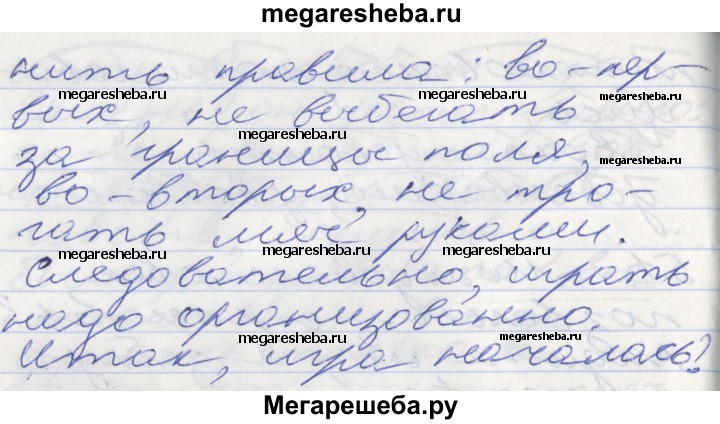 megaresheba.ru
нить правила: во-пер-
megaresheba.ru megaresheba.ru
вых, не выбегать
megaresheba.ru
за границы поля,
megaresheba.ru
во-вторых, не тро-
megaresheba.ru
гать мяч руками.
megaresheba.ru megaresheba.ru
Следовательно, играть
надо организованно.
megaresheba.ru megaresheba.ru
Итак, игра началась!
Мегарешеба.ру